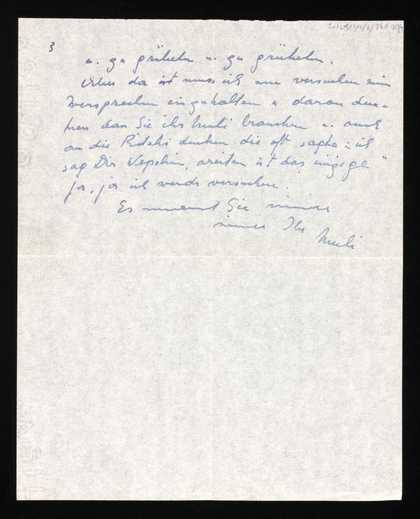 3
u. zu grübeln u. zu grübeln.
Aber da ist muss ich nun versuchen ein
Versprechen einzuhalten u daran den-
ken dass Sie ihr brauchen u. auch
an die denken die oft sagte: "ich
sag Dir, arbeiten ist das einzige"
ja, ja ich werde versuchen.
Es umarmt Sie immer
immer Ihr